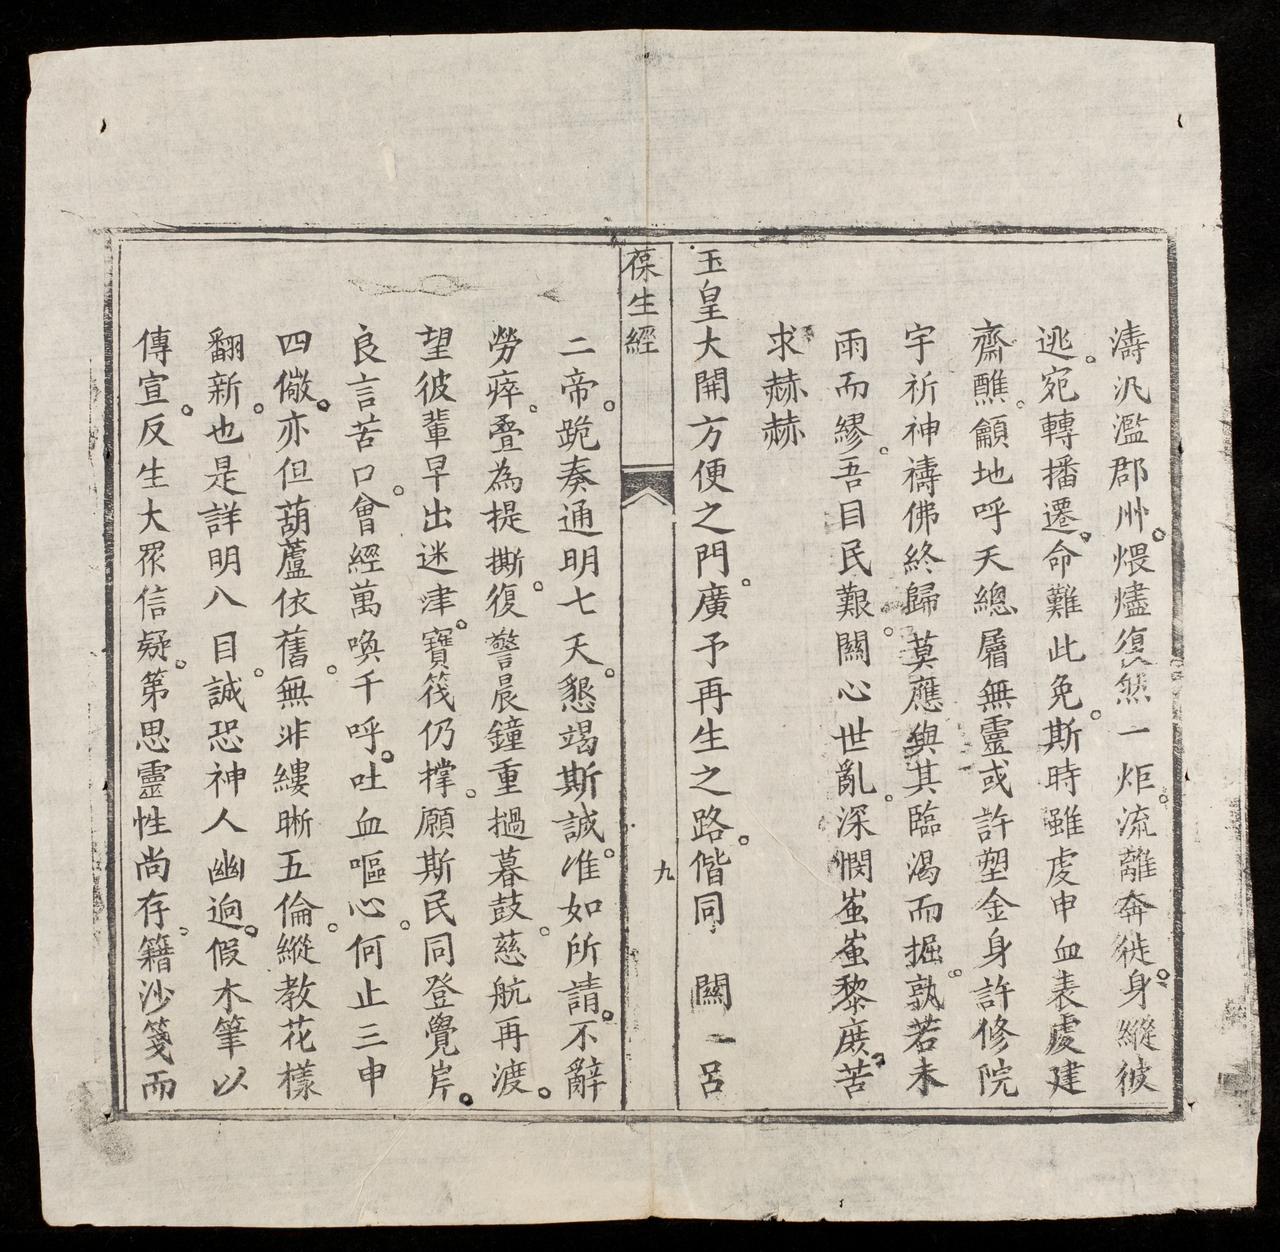 濤汎濫郡州。煨燼復然一炬。流離奔徙。身縱彼
逃。宛轉播遷。命難此免。斯時雖虔申血表虔建
齋醮。籲地呼天總層無靈或許塑金身許修院
宇祈神禱佛終歸莫應與其臨渴而掘。孰若未
雨而繆。吾目民艱。關心世亂。深憫蚩蚩黎庶。苦
求赫赫
玉皇大開方便之門。廣予再生之路。偕同 關 呂
葆生經
九
二帝。跪奏通明七天。懇竭斯誠。准如所請。不辭
勞瘁。叠為提撕。復警晨鐘重撾暮鼓。慈航再渡。
望彼輩早出迷津。寶筏仍撐。願斯民同登覺岸。
良言苦口。會經萬喚千呼。吐血嘔心。何止三申
四儆。亦但葫蘆依舊。無非縷晰五倫。縱教花樣
翻新。也是詳明八目。誠恐神人幽逈。假木筆以
傳宣。反生大眾信疑。第思靈性尚存。籍沙箋而